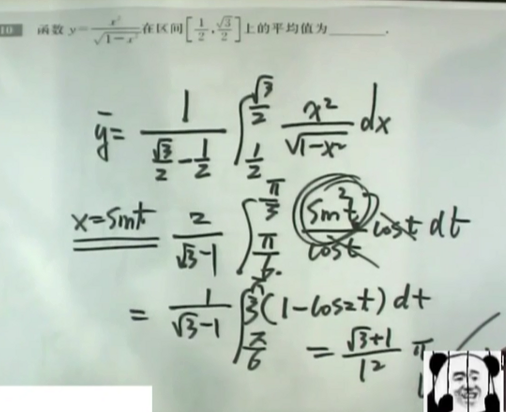 10 函数 y=\frac{x^2}{\sqrt{1-x^2}} 在区间 [\frac{1}{2}, \frac{\sqrt{3}}{2}] 上的平均值为______.
\bar{y}= \frac{1}{\frac{\sqrt{3}}{2}-\frac{1}{2}} \int_{\frac{1}{2}}^{\frac{\sqrt{3}}{2}} \frac{x^2}{\sqrt{1-x^2}} dx
x=sint \frac{2}{\sqrt{3}-1} \int_{\frac{π}{6}}^{\frac{π}{3}} \frac{sin^2t}{cost} cost dt
= \frac{1}{\sqrt{3}-1} \int_{\frac{π}{6}}^{\frac{π}{3}} (1-cos2t) dt
= \frac{\sqrt{3}+1}{12} π